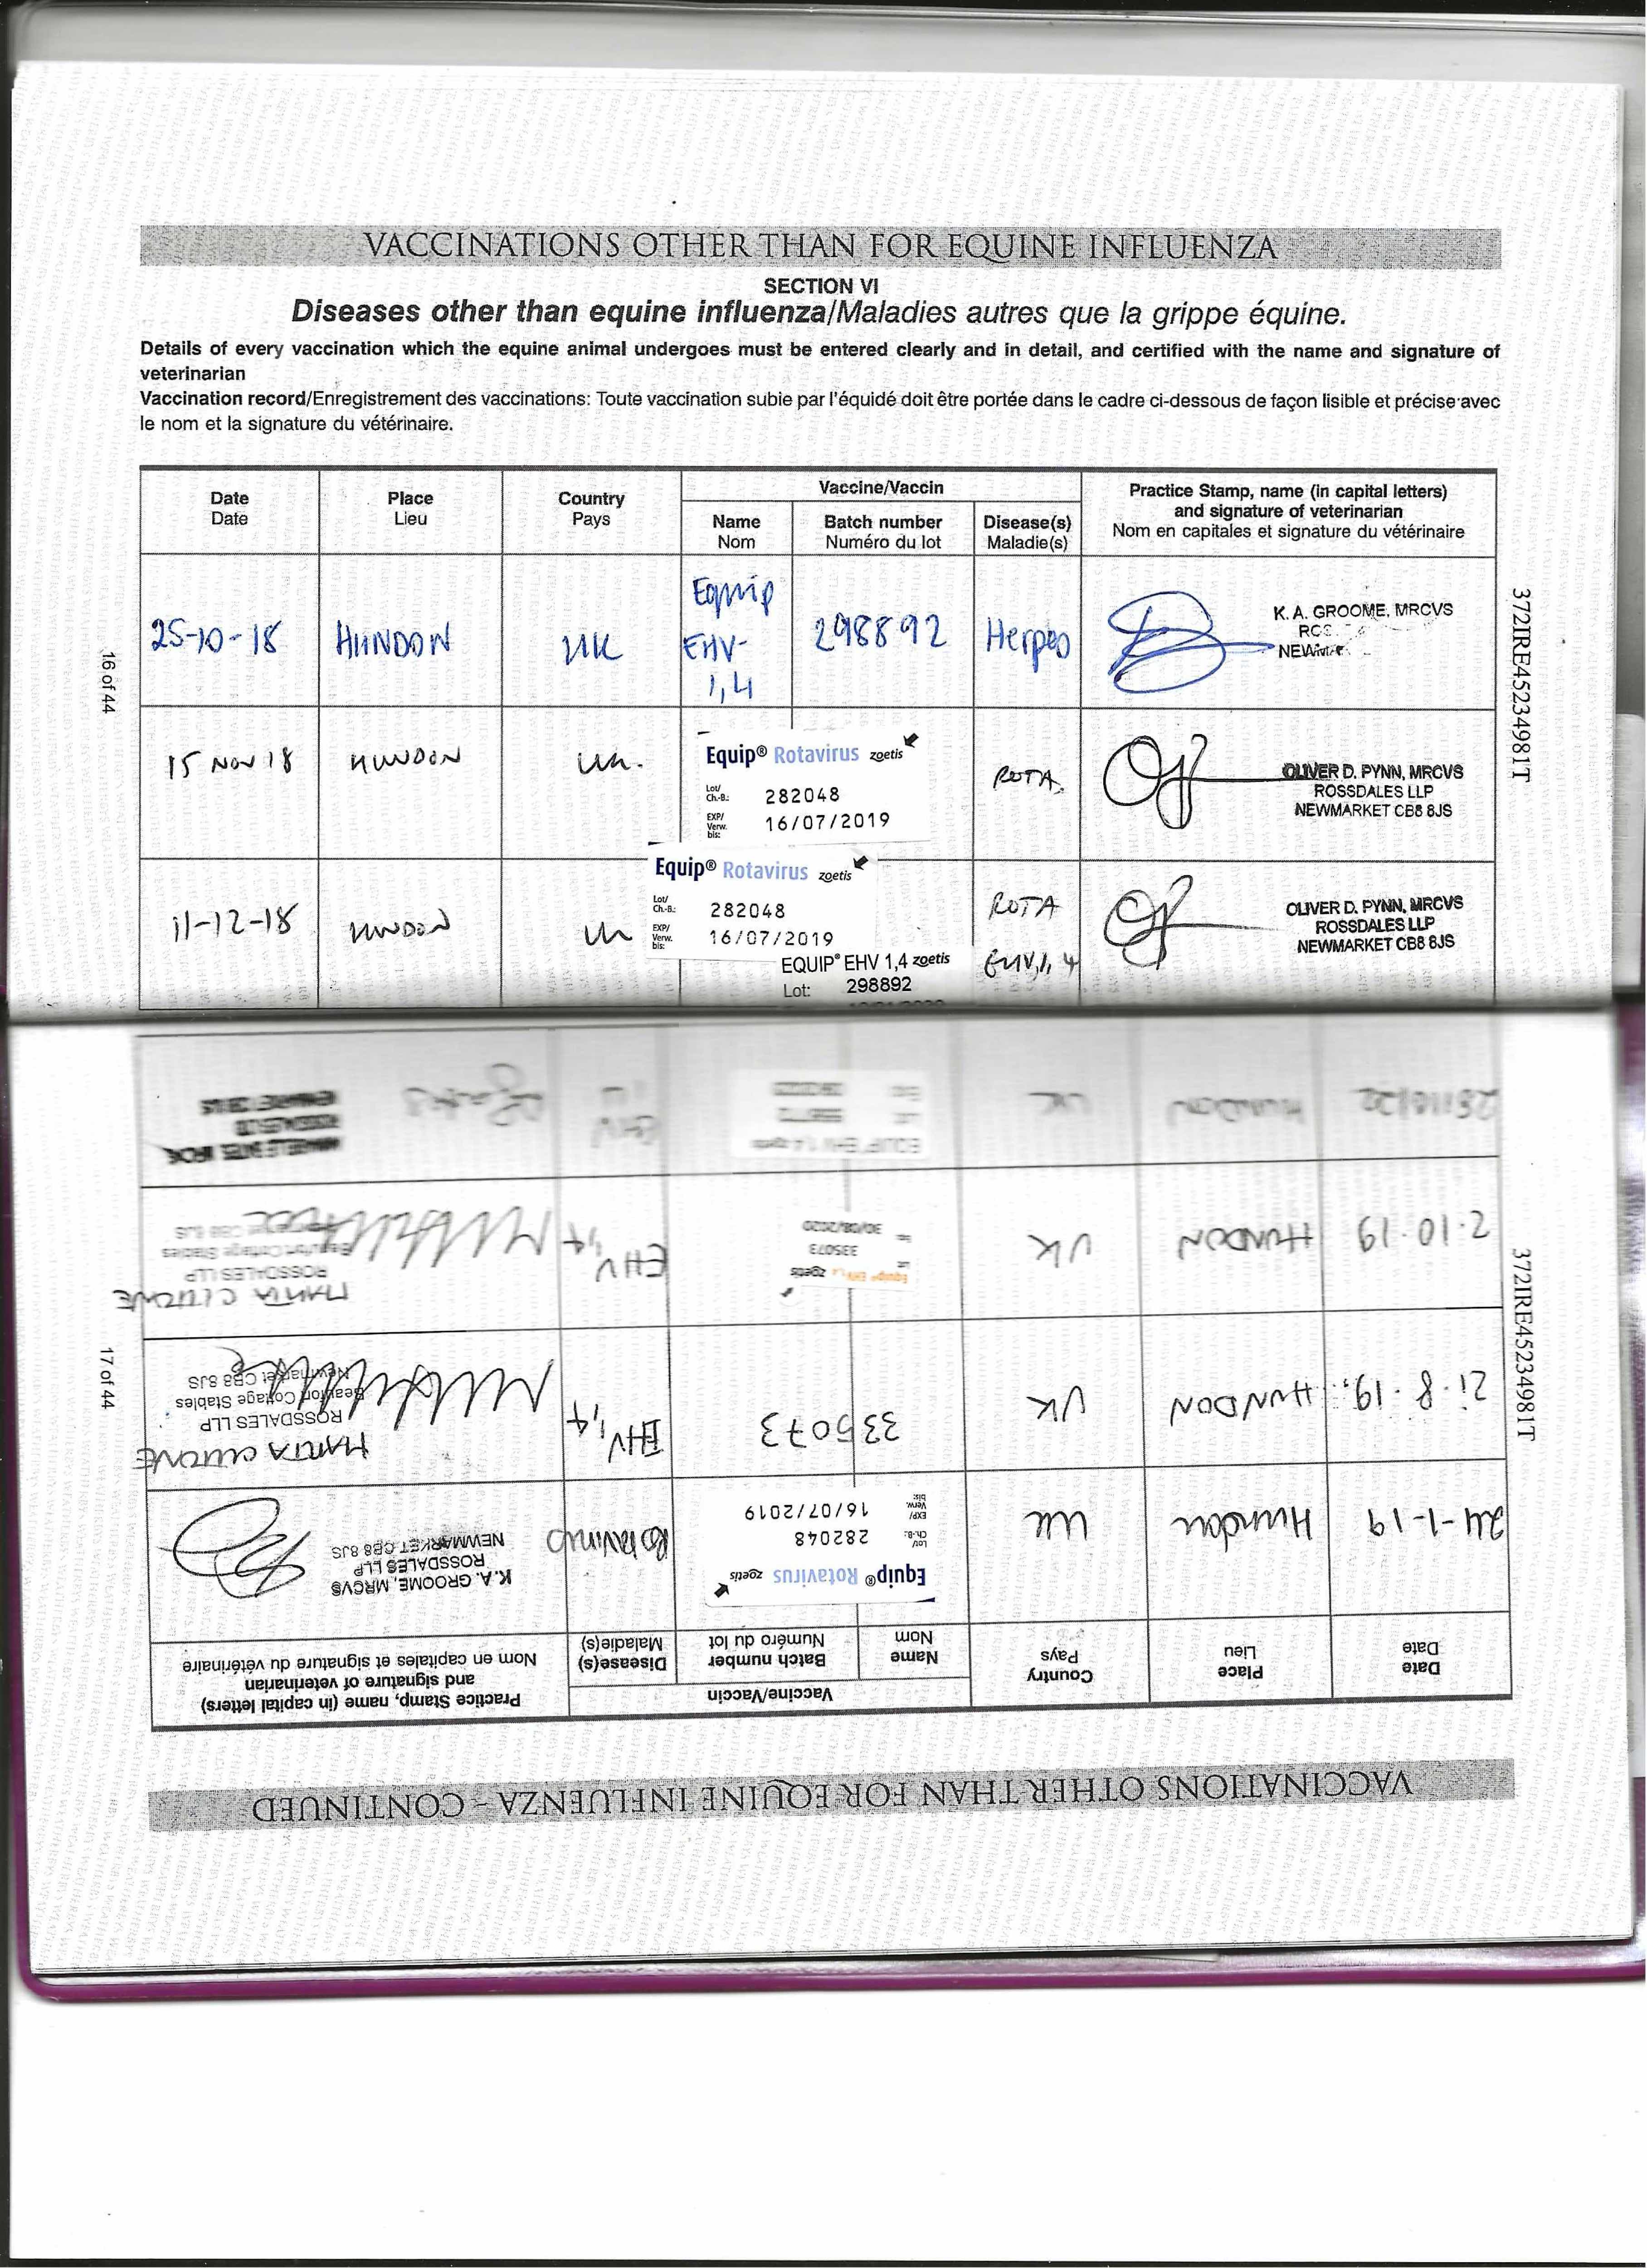 VACCINATIONS OTHER THAN FOR EQUINE INFLUENZA
SECTION VI
Diseases other than equine influenza/Maladies autres que la grippe équine.
Details of every vaccination which the equine animal undergoes must be entered clearly and in detail, and certified with the name and signature of
veterinarian
Vaccination record/Enregistrement des vaccinations: Toute vaccination subie par l'équidé doit être portée dans le cadre ci-dessous de façon lisible et précise avec
le nom et la signature du vétérinaire.
Date
Date
Place
Lieu
Country
Pays
Vaccine/Vaccin
Name
Nom
Batch number
Numéro du lot
Disease(s)
Maladie(s)
Practice Stamp, name (in capital letters)
and signature of veterinarian
Nom en capitales et signature du vétérinaire
25-10-18
HUNDON
UK
Equip
EHV-
1,4
298892
Herpes
K. A. GROOME, MRCVS
15 NOV 18
HUNDON
UK.
Equip® Rotavirus zoetis
Lot/
Ch.-B.: 282048
EXP/
Verw.
bis: 16/07/2019
ROTA.
OLIVER D. PYNN, MRCVS
ROSSDALES LLP
NEWMARKET CB8 8JS
11-12-18
HUNDON
UK
Equip® Rotavirus zoetis
Lot/
Ch.-B.: 282048
EXP/
Verw.
bis: 16/07/2019
EQUIP® EHV 1,4 zoetis
Lot: 298892
ROTA
EHV,1,4
OLIVER D. PYNN, MRCVS
ROSSDALES LLP
NEWMARKET CB8 8JS
16 of 44
372IRE45234981T
VACCINATIONS OTHER THAN FOR EQUINE INFLUENZA – CONTINUED
Date
Date
Place
Lieu
Country
Pays
Vaccine/Vaccin
Name
Nom
Batch number
Numéro du lot
Disease(s)
Maladie(s)
Practice Stamp, name (in capital letters)
and signature of veterinarian
Nom en capitales et signature du vétérinaire
24-1-19
Hundon
UK
Equip® Rotavirus zoetis
Lot/
Ch.-B.: 282048
EXP/
Verw.
bis: 16/07/2019
Rotavirus
K.A. GROOME, MRCVS
ROSSDALES LLP
NEWMARKET CB8 8JS
21.8.19.
HUNDON
UK
335073
EHV 1,4
ROSSDALES LLP
Beaufort Cottage Stables
Newmarket CB8 8JS
2.10.19
HUNDON
UK
Equip® EHV 1,4 zoetis
335073
30/08/2020
EHV 1,4
ROSSDALES LLP
Beaufort Cottage Stables
CB8 8JS
HUNDON
UK
EQUIP® EHV 1,4 zoetis
EHV
17 of 44
372IRE45234981T